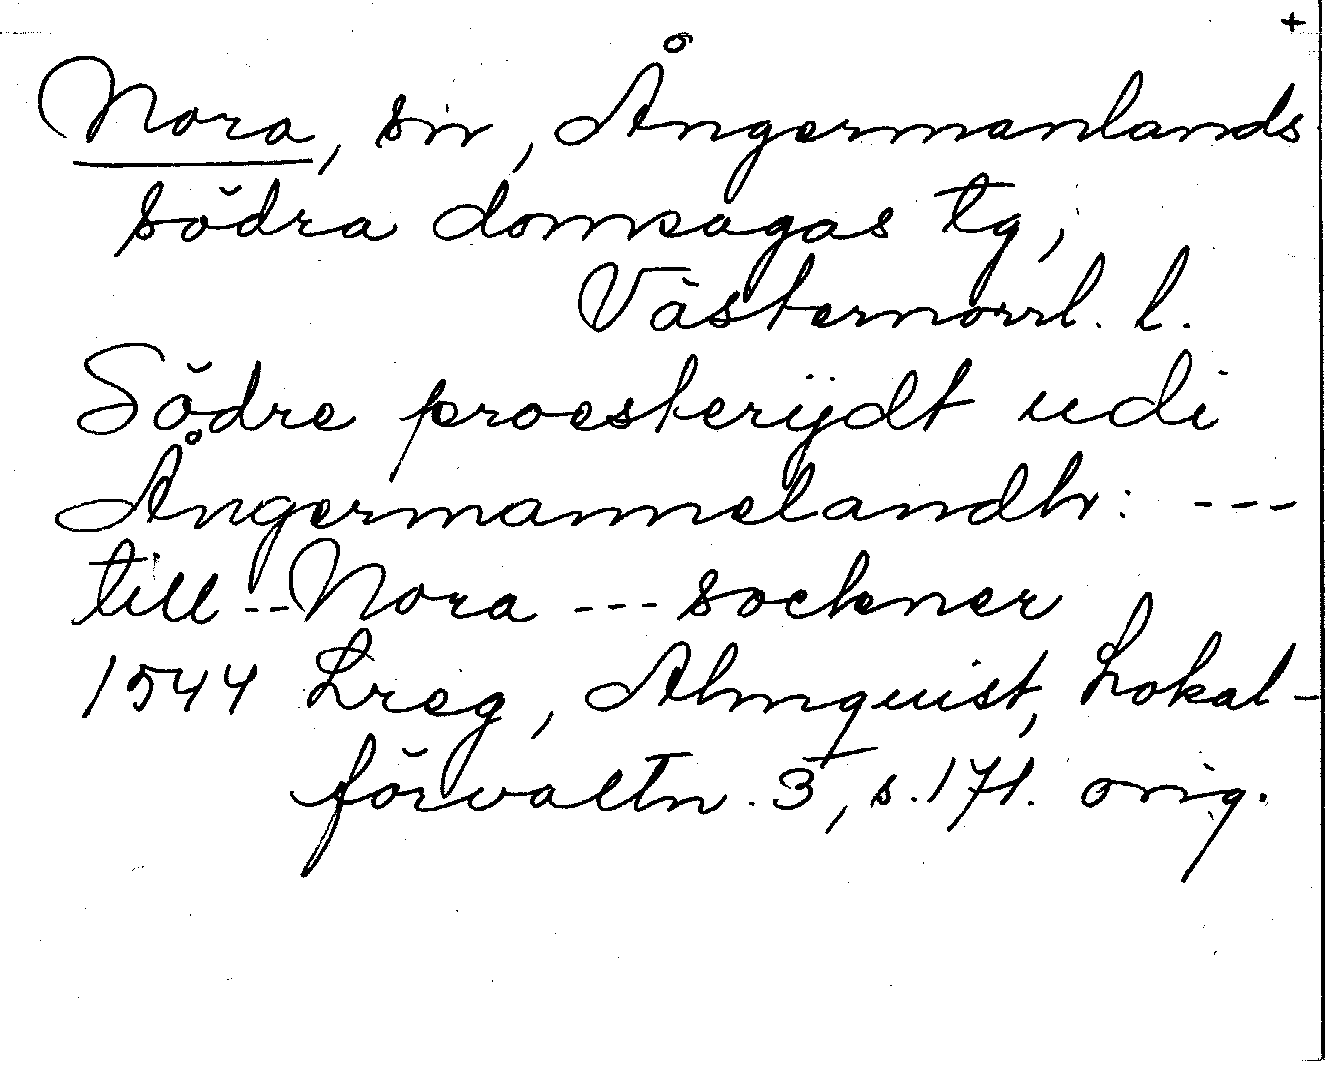 +
Nora, sn, Ångermanlands
södra domsagas tg,
Västernorrl. l.
Södre proesterijdt udi
Ångermannelandh: ---
till -- Nora --- sockner
1544 Lreg, Almquist, Lokal-
förvaltn. 3, s. 171. orig.